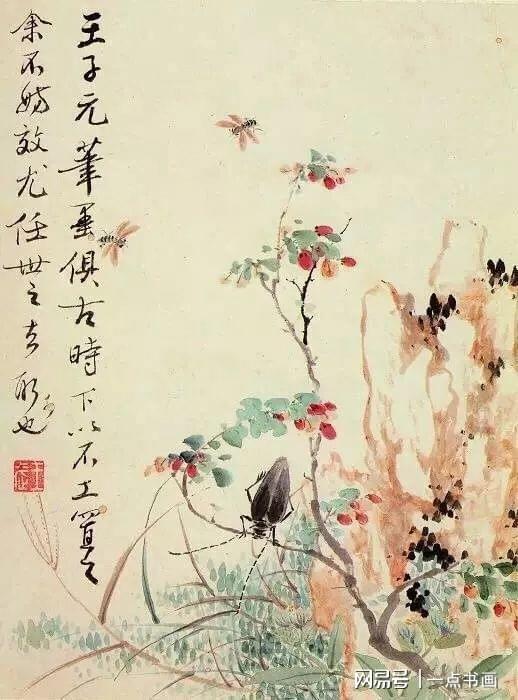 王子元筆墨俱古時下以不工置之
余不妨效尤任世之去取也
网易号 | 一点书画